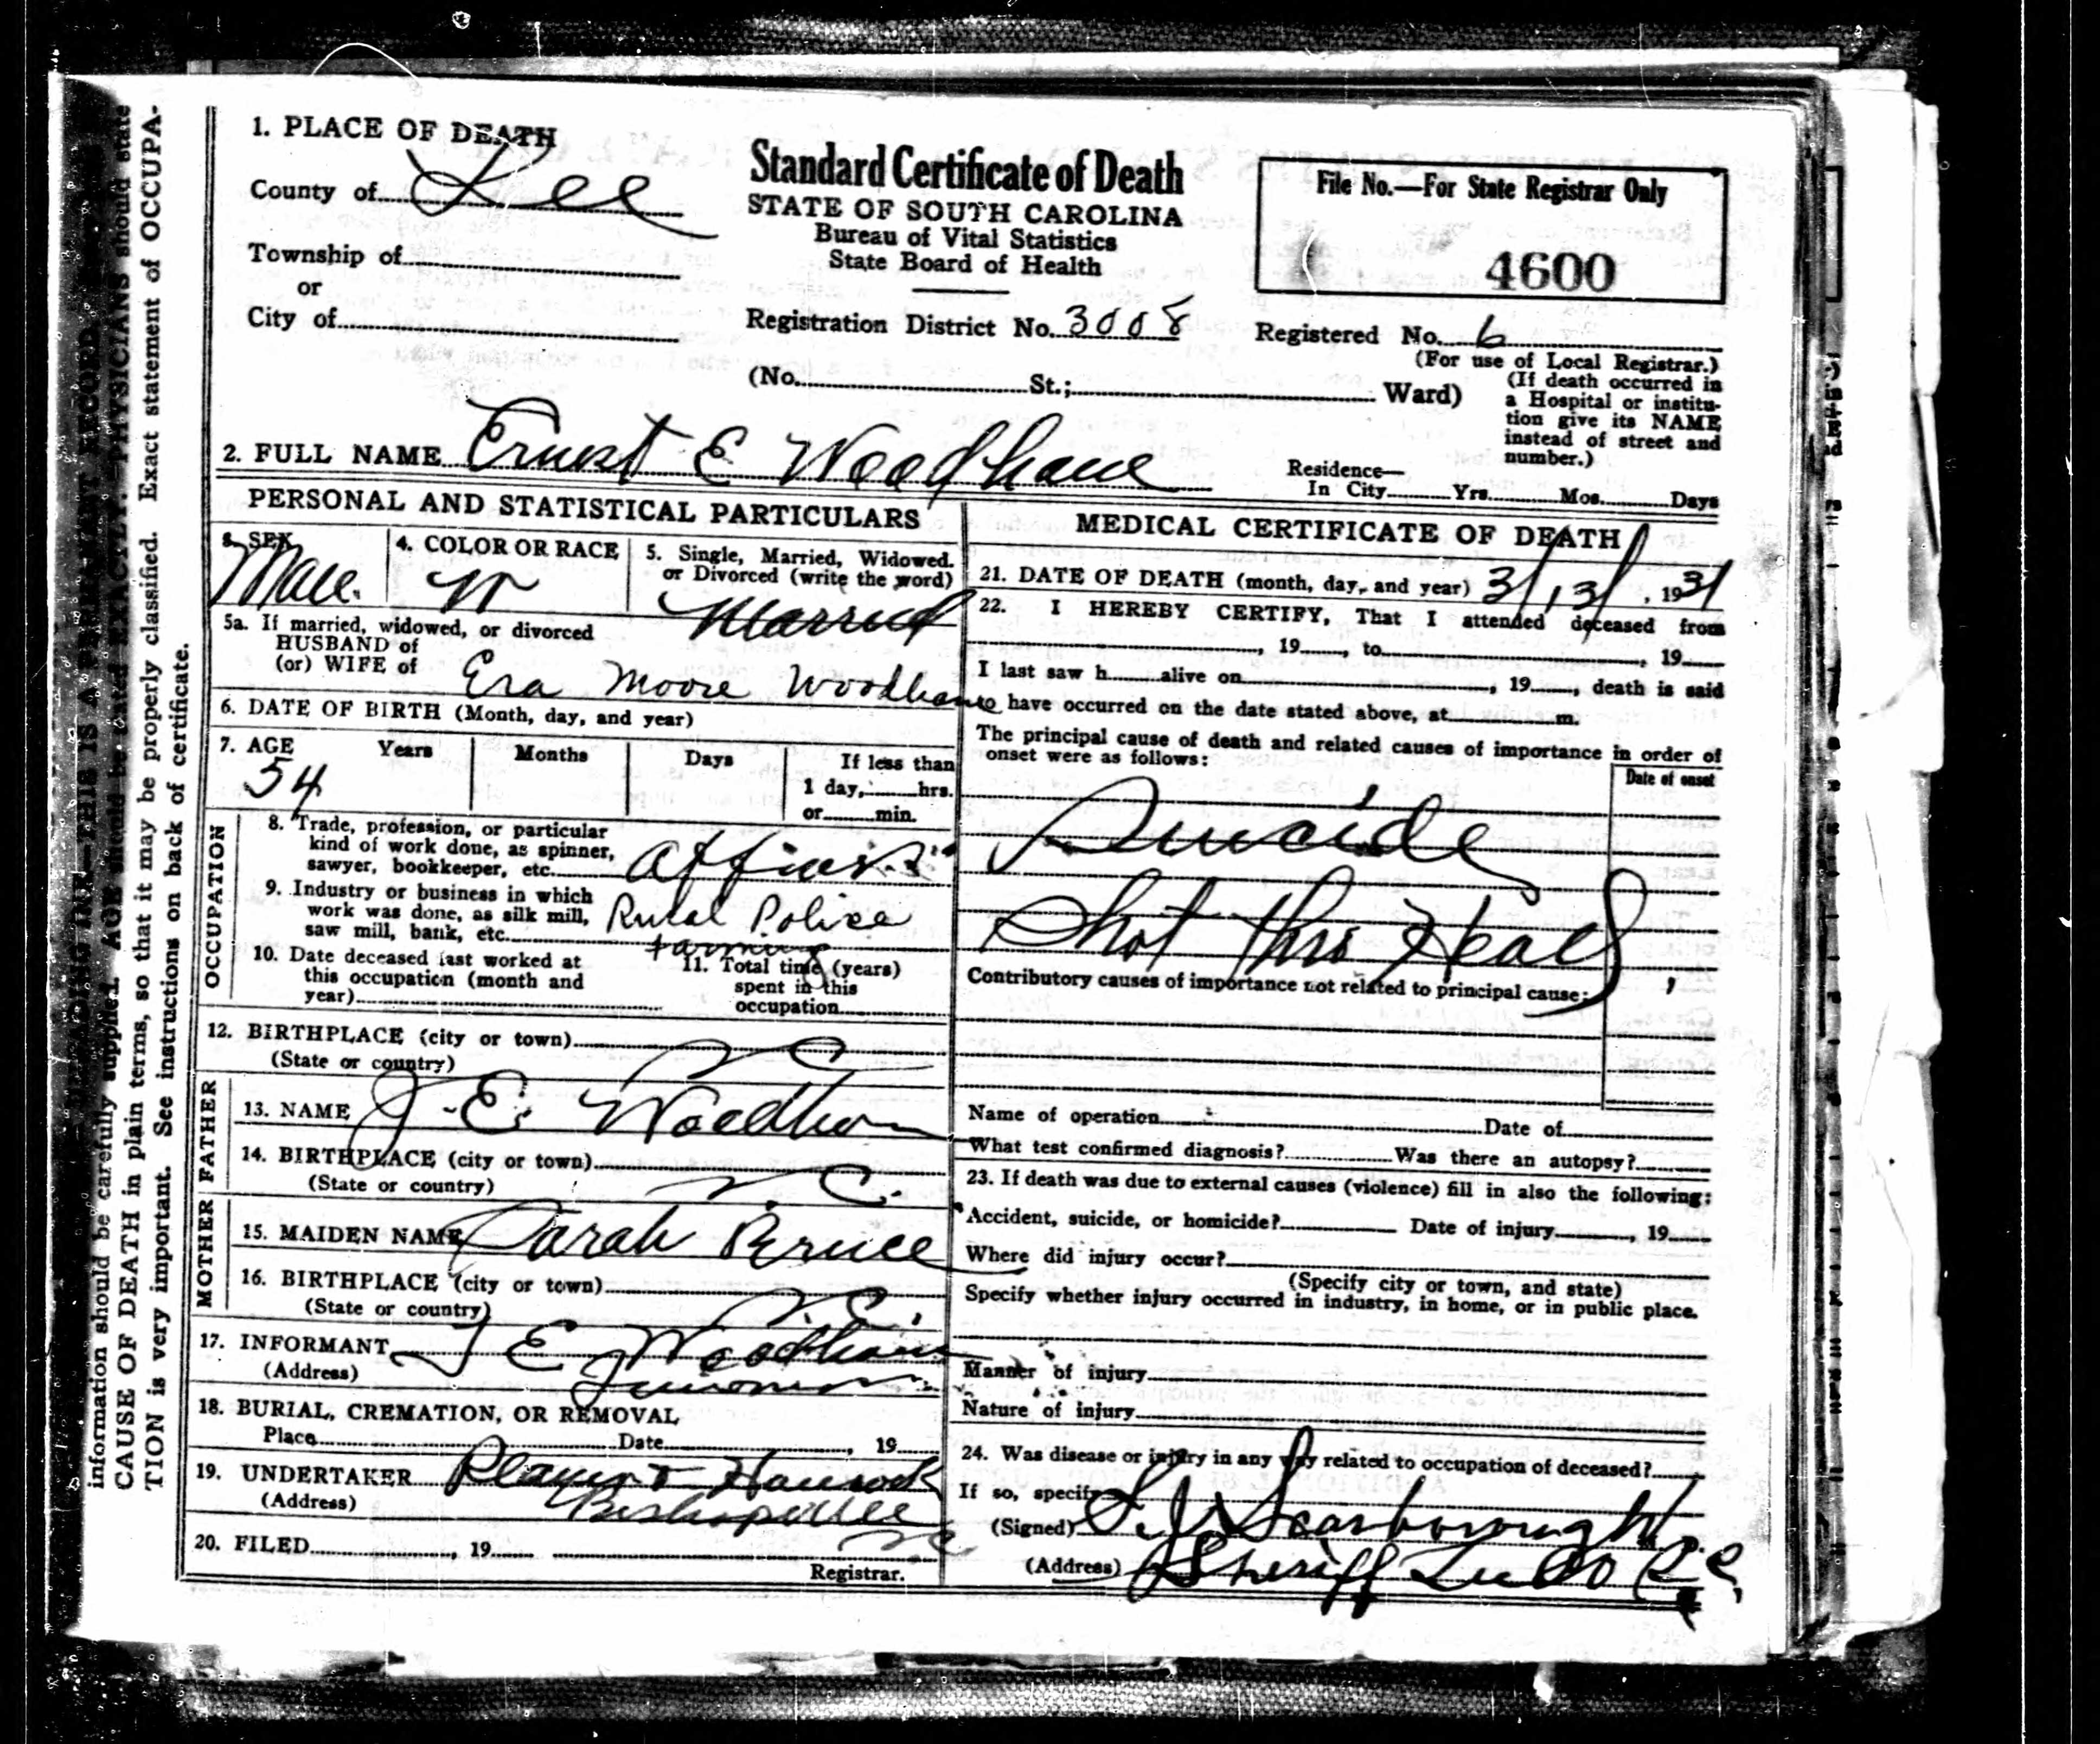 1. PLACE OF DEATH
County of Lee
Township of
or
City of
Standard Certificate of Death
STATE OF SOUTH CAROLINA
Bureau of Vital Statistics
State Board of Health
File No.—For State Registrar Only
4600
Registration District No. 3008
Registered No. 6
(For use of Local Registrar.)
(No. St.; Ward)
(If death occurred in
a Hospital or institu-
tion give its NAME
instead of street and
number.)
2. FULL NAME Ernest E Woodham
Residence—
In City Yrs. Mos. Days
PERSONAL AND STATISTICAL PARTICULARS
3. SEX
Male.
4. COLOR OR RACE
W
5. Single, Married, Widowed.
or Divorced (write the word)
Married
5a. If married, widowed, or divorced
HUSBAND of
(or) WIFE of
Era Moore Woodham
6. DATE OF BIRTH (Month, day, and year)
7. AGE Years Months Days If less than
54
1 day, hrs.
or min.
OCCUPATION
8. Trade, profession, or particular
kind of work done, as spinner,
sawyer, bookkeeper, etc.
9. Industry or business in which
work was done, as silk mill,
saw mill, bank, etc.
Rural Police
farming
10. Date deceased last worked at
this occupation (month and
year)
11. Total time (years)
spent in this
occupation
12. BIRTHPLACE (city or town)
(State or country)
FATHER
13. NAME J. E. Woodham
14. BIRTHPLACE (city or town)
(State or country)
MOTHER
15. MAIDEN NAME Sarah Bruce
16. BIRTHPLACE (city or town)
(State or country)
17. INFORMANT J E Woodham
(Address)
18. BURIAL, CREMATION, OR REMOVAL
Place Date , 19
19. UNDERTAKER Hancock
(Address) Bishopville
20. FILED , 19
Registrar.
MEDICAL CERTIFICATE OF DEATH
21. DATE OF DEATH (month, day, and year) 3/13/, 1931
22. I HEREBY CERTIFY, That I attended deceased from
, 19 , to , 19
I last saw h alive on , 19 , death is said
to have occurred on the date stated above, at m.
The principal cause of death and related causes of importance in order of
onset were as follows:
Date of onset
Suicide
Shot thro Head
Contributory causes of importance not related to principal cause:
Name of operation Date of
What test confirmed diagnosis? Was there an autopsy?
23. If death was due to external causes (violence) fill in also the following:
Accident, suicide, or homicide? Date of injury , 19
Where did injury occur?
(Specify city or town, and state)
Specify whether injury occurred in industry, in home, or in public place.
Manner of injury
Nature of injury
24. Was disease or injury in any way related to occupation of deceased?
If so, specify
(Signed) Scarborough
(Address) Sheriff
information should be carefully supplied. AGE should be stated EXACTLY. PHYSICIANS should state
CAUSE OF DEATH in plain terms, so that it may be properly classified. Exact statement of OCCUPA-
TION is very important. See instructions on back of certificate.